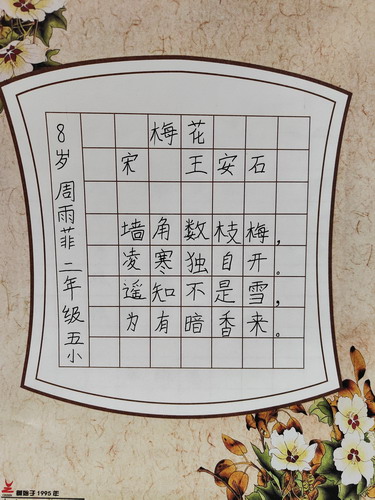 梅花
宋 王安石
墙角数枝梅，
凌寒独自开。
遥知不是雪，
为有暗香来。
8岁 周雨菲 二年级 五小
创始于1995年